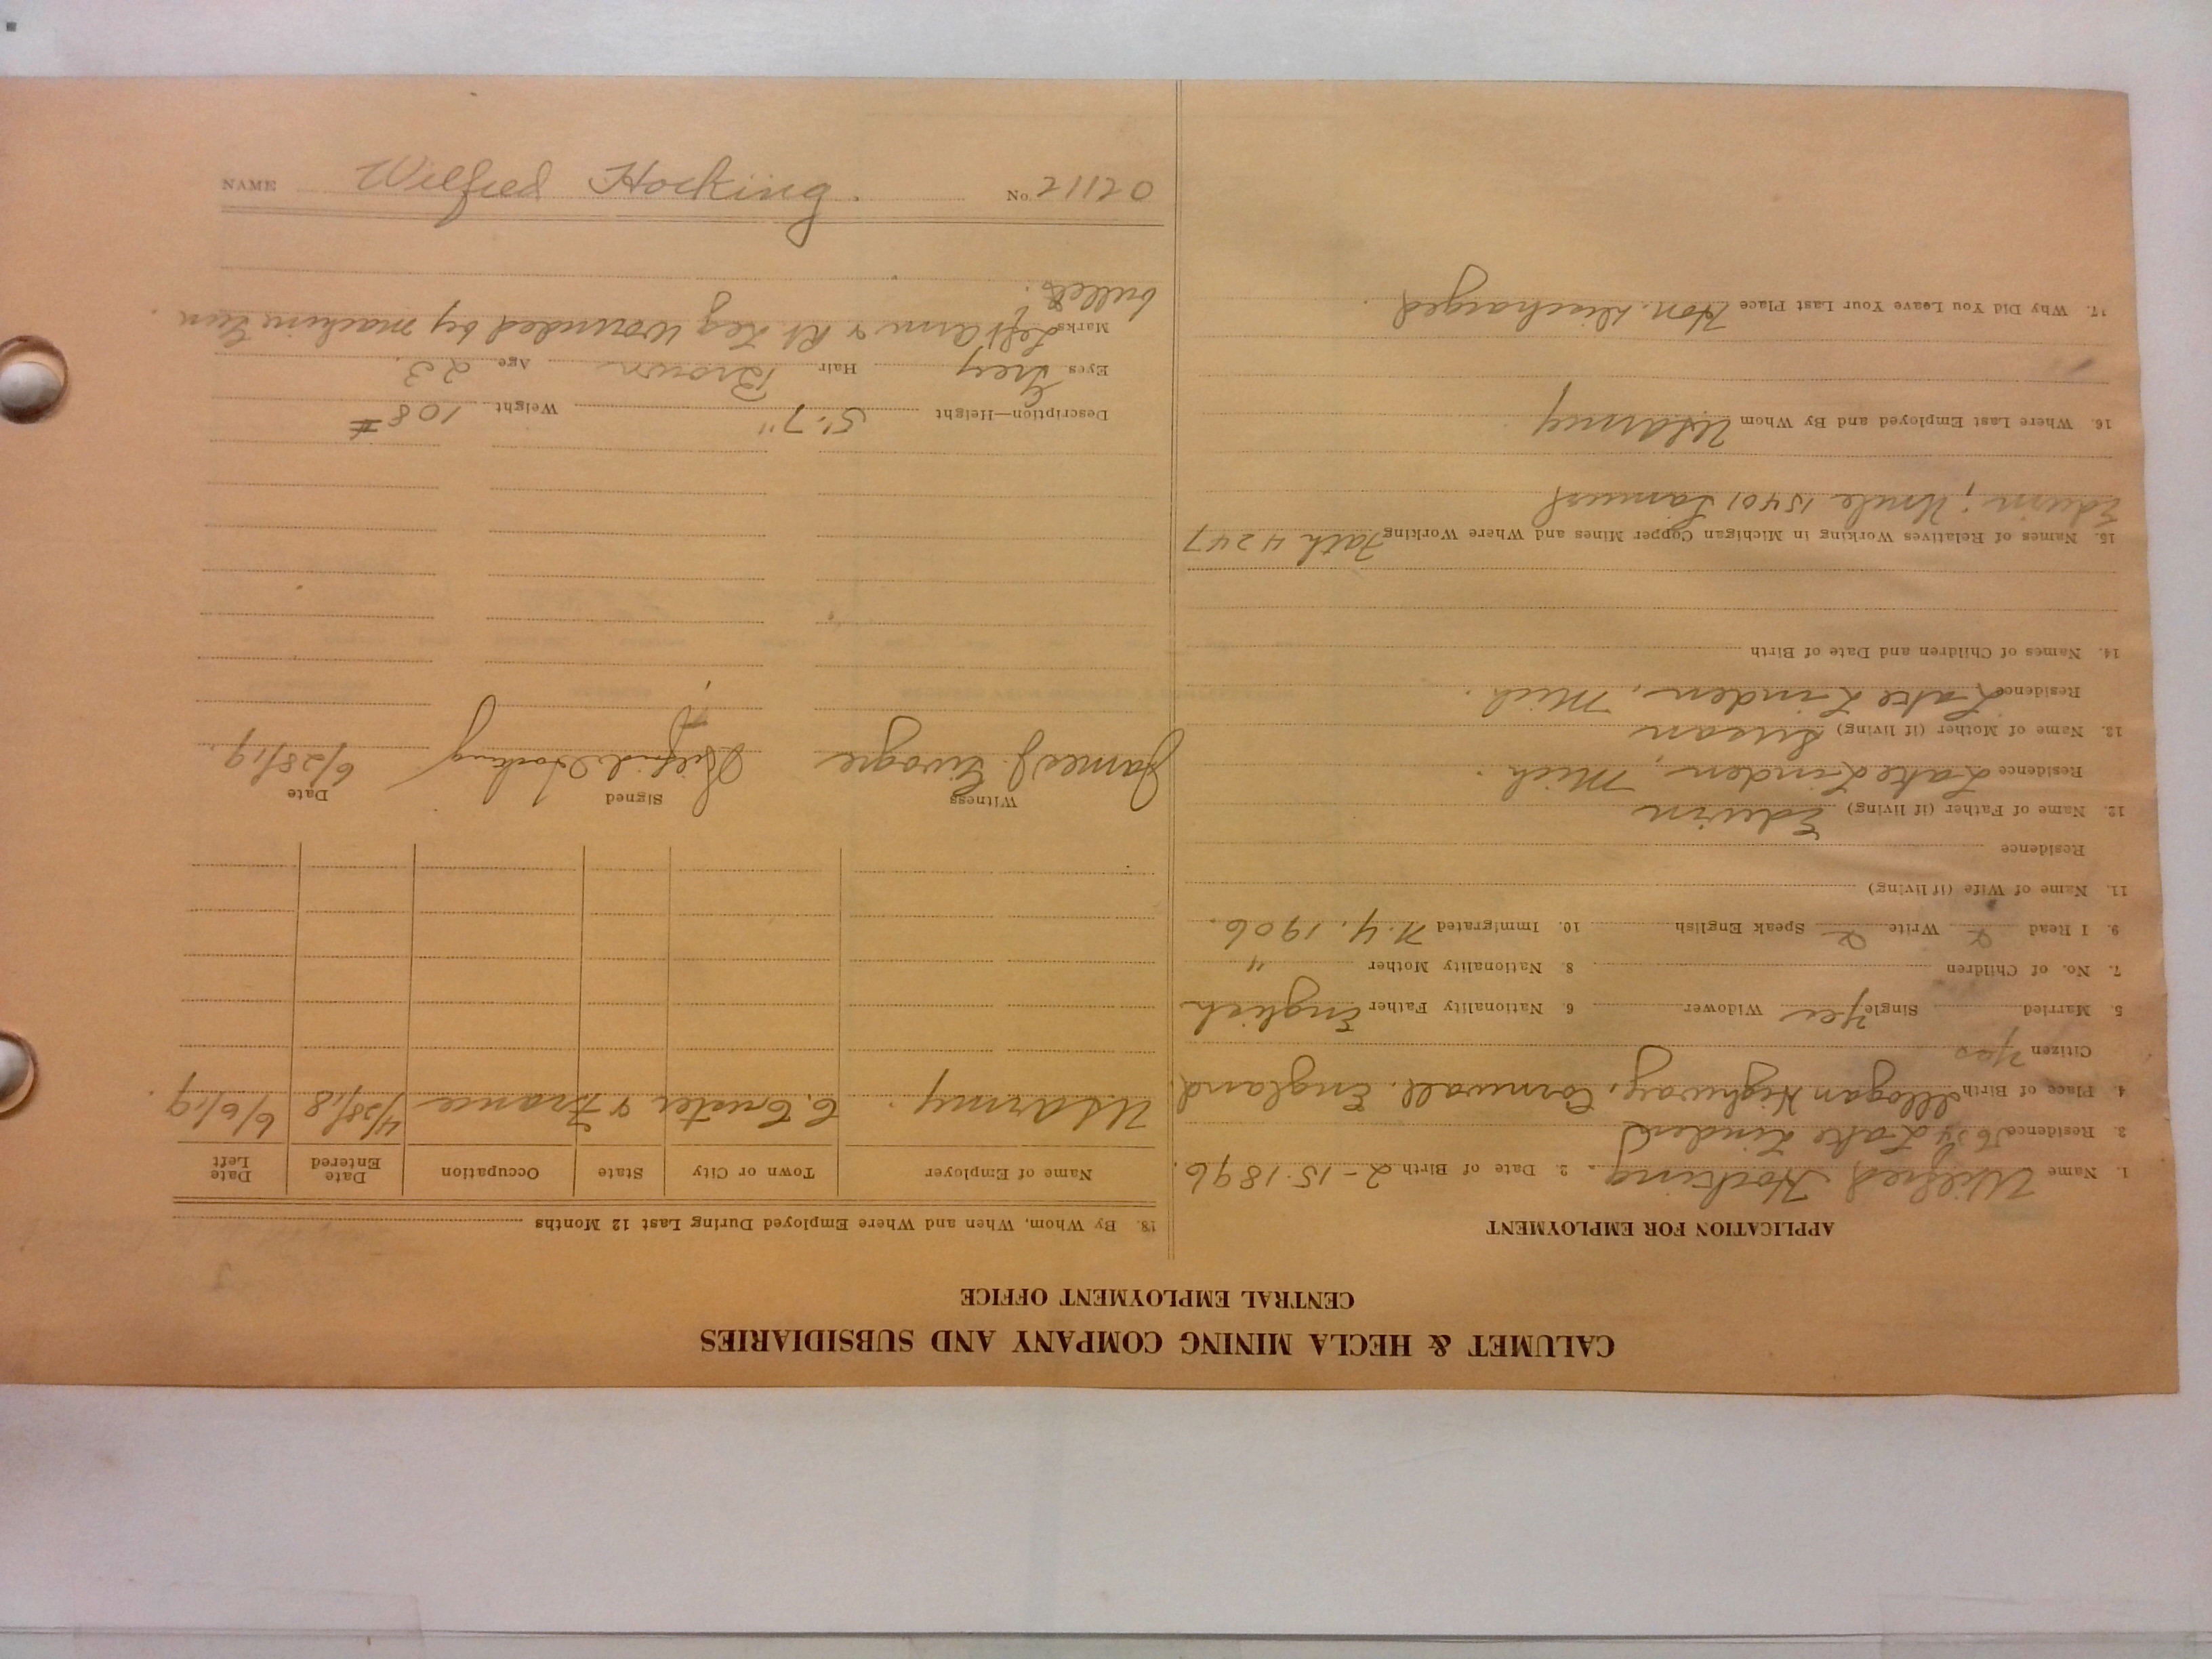 CALUMET & HECLA MINING COMPANY AND SUBSIDIARIES
CENTRAL EMPLOYMENT OFFICE
APPLICATION FOR EMPLOYMENT
1. Name Wilfred Hocking. 2. Date of Birth 2-15-1896.
3. Residence Lake Linden
4. Place of Birth Illogan Highway, Cornwall, England.
Citizen Yes
5. Married Single Yes Widower 6. Nationality Father English
7. No. of Children 8. Nationality Mother "
9. I Read Write Speak English 10. Immigrated N.Y. 1906.
11. Name of Wife (if living)
Residence
12. Name of Father (if living) Edwin
Residence Lake Linden, Mich.
13. Name of Mother (if living) Susan
Residence Lake Linden, Mich.
14. Names of Children and Date of Birth
15. Names of Relatives Working in Michigan Copper Mines and Where Working Fath 4247
Edwin; Uncle 15401 Samuel
16. Where Last Employed and By Whom US Army
17. Why Did You Leave Your Last Place Hon. Discharged.
18. By Whom, When and Where Employed During Last 12 Months
Name of Employer Town or City State Occupation Date Entered Date Left
US Army. C. Custer & France 4/28/18 6/6/19.
Witness Signed Date
James J. Wilfrid Hocking 6/28/19.
Description—Height 5'-7" Weight 108 #
Eyes Grey Hair Brown Age 23.
Marks Left arm & Rt Leg wounded by machine gun
bullets.
NAME Wilfred Hocking. No. 21120